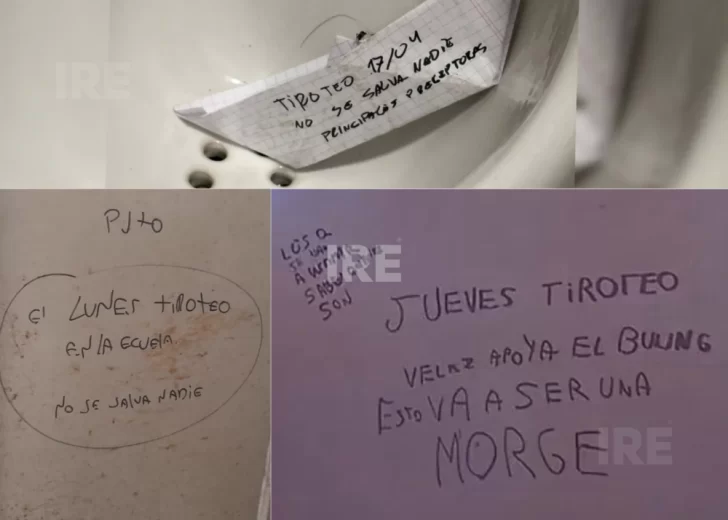 TIROTEO 17/04
NO SE SALVA NADIE
PRINCIPALES PRECEPTORAS
PJto
El LUNES tiROTEO
EN LA ECUELA
NO SE SALVA NADIE
LOS Q
SE VAN
A
SABEN
SON
JUEVES TIROTEO
VELAZ APOYA EL BULING
Esto VA A SER UNA
MORGE
IRE
IRE
IRE